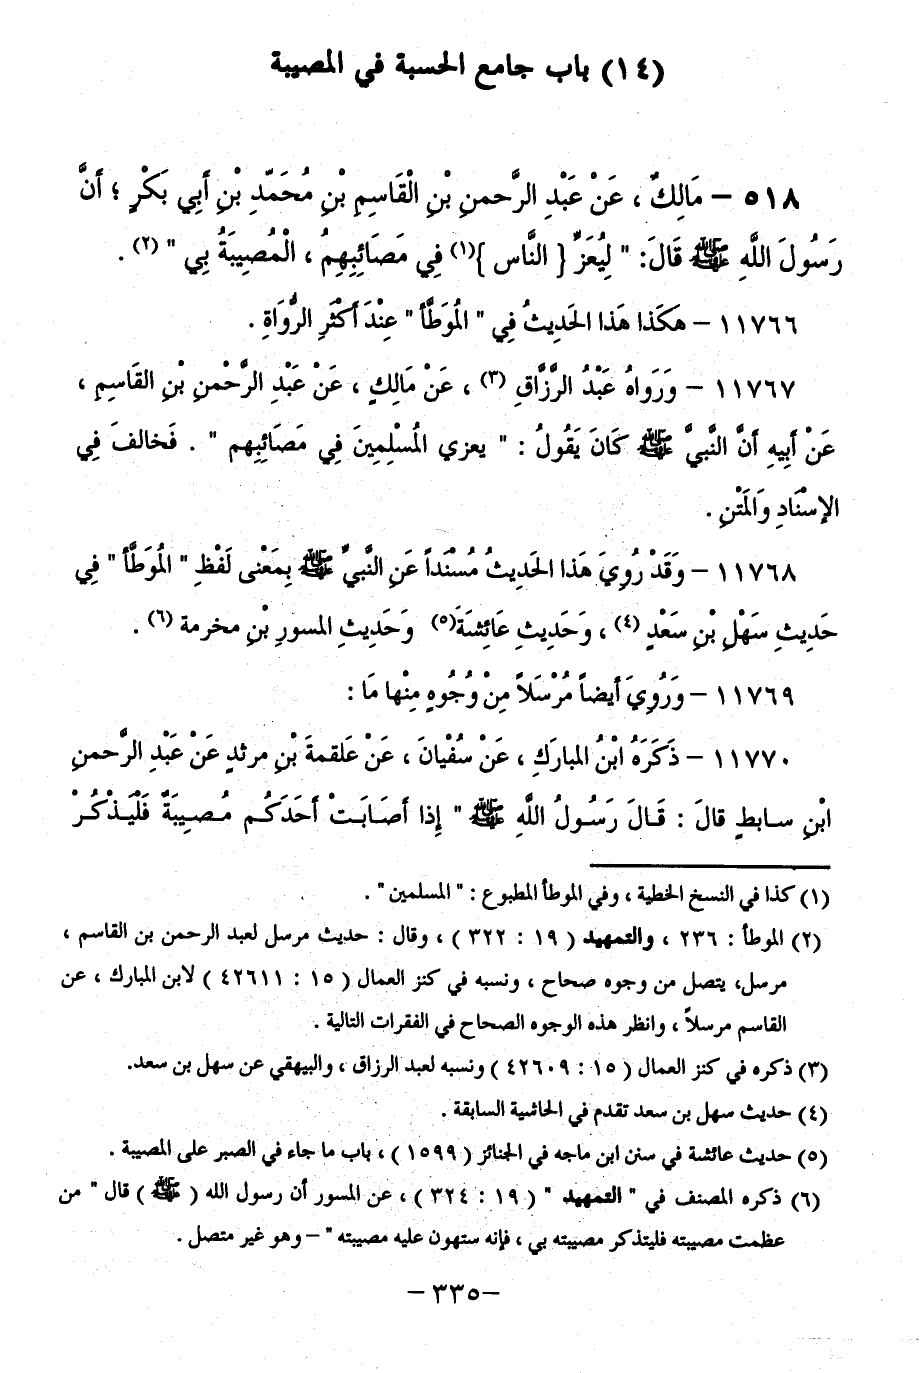 (١٤) باب جامع الحسبة في المصيبة
٥١٨ – مَالِكٌ ، عَنْ عَبْدِ الرَّحمنِ بْنِ الْقَاسِمِ بْنِ مُحَمَّدِ بْنِ أَبِي بَكْرٍ ؛ أَنَّ
رَسُولَ اللَّهِ ﷺ قَالَ: " لِيُعَزِّ { النَّاس }(١) فِي مَصَائِبِهِمُ ، الْمُصِيبَةُ بِي " (٢) .
١١٧٦٦ – هَكَذا هَذا الحَدِيثُ فِي " المُوَطَّأ " عِنْدَ أَكْثَرِ الرُّوَاةِ .
١١٧٦٧ – وَرَواهُ عَبْدُ الرَّزَّاقِ (٣) ، عَنْ مَالِكٍ ، عَنْ عَبْدِ الرَّحْمنِ بْنِ القَاسِمِ ،
عَنْ أَبِيهِ أَنَّ النَّبيَّ ﷺ كَانَ يَقُولُ : " يعزي المُسْلِمِينَ فِي مَصَائِبِهِم " . فَخالفَ فِي
الإسْنَادِ وَالمَتْنِ .
١١٧٦٨ – وَقَدْ رُوِيَ هَذا الحَدِيثُ مُسْنَداً عَنِ النَّبيِّ ﷺ بِمَعْنى لَفْظِ " المُوَطَّأ " فِي
حَدِيثِ سَهْلِ بْنِ سَعْدٍ (٤) ، وَحَدِيثِ عَائِشَةَ(٥) وَحَدِيثِ المسورِ بْنِ مخرمة (٦) .
١١٧٦٩ – وَرُوِيَ أَيضاً مُرْسَلاً مِنْ وُجُوهٍ مِنْها مَا :
١١٧٧٠ – ذَكَرَهُ ابْنُ المبارَكِ ، عَنْ سُفْيانَ ، عَنْ عَلقمةَ بْنِ مرثدٍ عَنْ عَبْدِ الرَّحمنِ
ابْنِ سـابطٍ قالَ : قَـالَ رَسُـولُ اللَّهِ ﷺ " إِذا أَصَـابَـتْ أَحَدَكُـم مُـصِـيبَةٌ فَلْيَـذْكُـرْ
(١) كذا في النسخ الخطية ، وفي الموطأ المطبوع : " المسلمين" .
(٢) الموطأ : ٢٣٦ ، والتمهيد ( ١٩ : ٣٢٢ ) ، وقال : حديث مرسل لعبد الرحمن بن القاسم ،
مرسل، يتصل من وجوه صحاح ، ونسبه في كنز العمال ( ١٥ : ٤٢٦١١ ) لابن المبارك ، عن
القاسم مرسلاً ، وانظر هذه الوجوه الصحاح في الفقرات التالية .
(٣) ذكره في كنز العمال ( ١٥ : ٤٢٦٠٩ ) ونسبه لعبد الرزاق ، والبيهقي عن سهل بن سعد.
(٤) حديث سهل بن سعد تقدم في الحاشية السابقة .
(٥) حديث عائشة في سنن ابن ماجه في الجنائز ( ١٥٩٩ ) ، باب ما جاء في الصبر على المصيبة .
(٦) ذكره المصنف في " التمهيد " ( ١٩ : ٣٢٤ ) ، عن المسور أن رسول الله ( ﷺ ) قال " من
عظمت مصيبته فليتذكر مصيبته بي ، فإنه ستهون عليه مصيبته " – وهو غير متصل .
– ٣٣٥ –